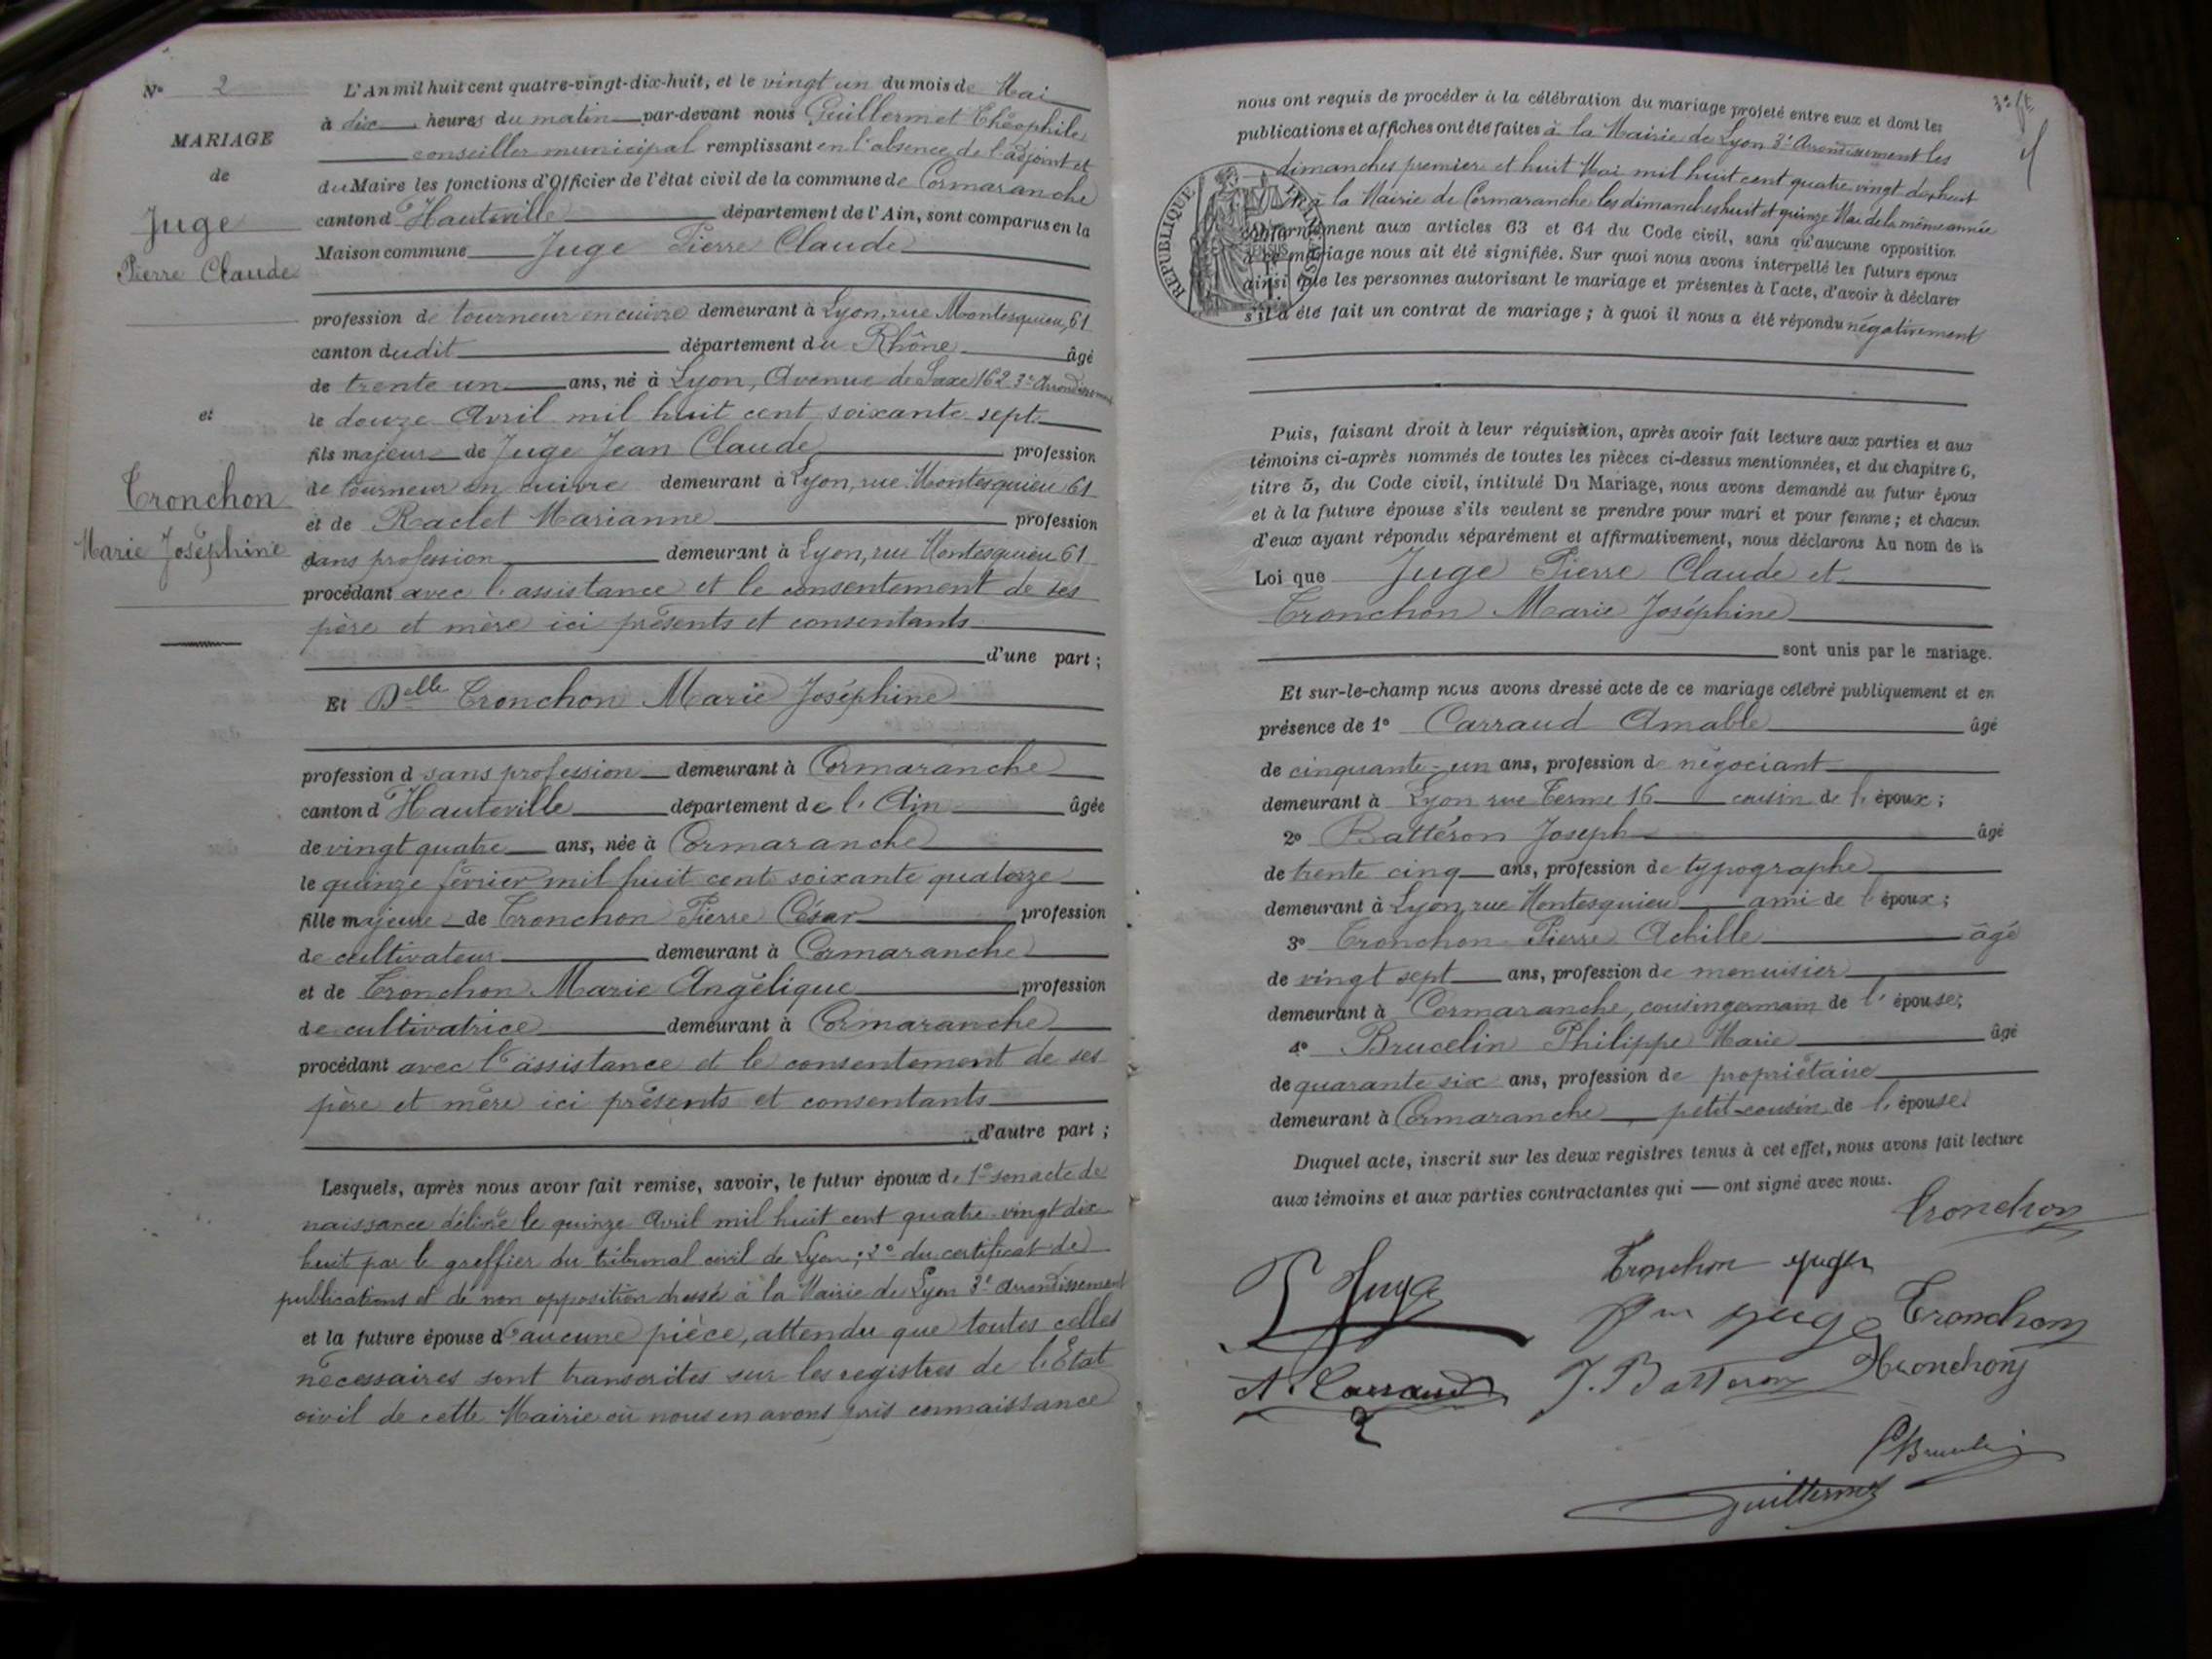 N° 2
MARIAGE
de
Juge
Pierre Claude
et
Tronchon
Marie Joséphine
L'An mil huit cent quatre-vingt-dix-huit, et le vingt un du mois de Mai
à dix heures du matin par-devant nous Guillermet Théophile
conseiller municipal remplissant en l'absence de l'adjoint et
du Maire les fonctions d'Officier de l'état civil de la commune de Cormaranche
canton d'Hauteville département de l'Ain, sont comparus en la
Maison commune Juge Pierre Claude
profession de tourneur en cuivre demeurant à Lyon, rue Montesquieu, 61
canton dudit département du Rhône âgé
de trente un ans, né à Lyon, Avenue de Saxe 162 3e Arrondissement
le douze Avril mil huit cent soixante sept
fils majeur de Juge Jean Claude profession
de tourneur en cuivre demeurant à Lyon, rue Montesquieu 61
et de Raclet Marianne profession
sans profession demeurant à Lyon, rue Montesquieu 61
procédant avec l'assistance et le consentement de ses
père et mère ici présents et consentants
d'une part ;
Et Delle Tronchon Marie Joséphine
profession d sans profession demeurant à Cormaranche
canton d'Hauteville département de l'Ain âgée
de vingt quatre ans, née à Cormaranche
le quinze février mil huit cent soixante quatorze
fille majeure de Tronchon Pierre César profession
de cultivateur demeurant à Cormaranche
et de Tronchon Marie Angélique profession
de cultivatrice demeurant à Cormaranche
procédant avec l'assistance et le consentement de ses
père et mère ici présents et consentants
d'autre part ;
Lesquels, après nous avoir fait remise, savoir, le futur époux de 1° son acte de
naissance délivré le quinze Avril mil huit cent quatre-vingt dix
huit par le greffier du tribunal civil de Lyon ; 2° du certificat de
publications et de non opposition dressé à la Mairie de Lyon 3e Arrondissement
et la future épouse d'aucune pièce, attendu que toutes celles
nécessaires sont transcrites sur les registres de l'Etat
civil de cette Mairie où nous en avons pris connaissance
nous ont requis de procéder à la célébration du mariage projeté entre eux et dont les
publications et affiches ont été faites à la Mairie de Lyon 3e Arrondissement les
dimanches premier et huit Mai mil huit cent quatre vingt dix huit
et à la Mairie de Cormaranche les dimanches huit et quinze Mai de la même année
conformément aux articles 63 et 64 du Code civil, sans qu'aucune opposition
à ce mariage nous ait été signifiée. Sur quoi nous avons interpellé les futurs époux
ainsi que les personnes autorisant le mariage et présentes à l'acte, d'avoir à déclarer
s'il a été fait un contrat de mariage ; à quoi il nous a été répondu négativement
REPUBLIQUE
Puis, faisant droit à leur réquisition, après avoir fait lecture aux parties et aux
témoins ci-après nommés de toutes les pièces ci-dessus mentionnées, et du chapitre 6,
titre 5, du Code civil, intitulé Du Mariage, nous avons demandé au futur époux
et à la future épouse s'ils veulent se prendre pour mari et pour femme ; et chacun
d'eux ayant répondu séparément et affirmativement, nous déclarons Au nom de la
Loi que Juge Pierre Claude et
Tronchon Marie Joséphine
sont unis par le mariage.
Et sur-le-champ nous avons dressé acte de ce mariage célébré publiquement et en
présence de 1° Carraud Amable âgé
de cinquante-un ans, profession de négociant
demeurant à Lyon rue Terme 16 cousin de l'époux ;
2° Battéron Joseph âgé
de trente cinq ans, profession de typographe
demeurant à Lyon, rue Montesquieu ami de l'époux ;
3° Tronchon Pierre Achille âgé
de vingt sept ans, profession de menuisier
demeurant à Cormaranche, cousin germain de l'épouse ;
4° Brucelin Philippe Marie âgé
de quarante six ans, profession de propriétaire
demeurant à Cormaranche petit-cousin de l'épouse.
Duquel acte, inscrit sur les deux registres tenus à cet effet, nous avons fait lecture
aux témoins et aux parties contractantes qui — ont signé avec nous.
Tronchon
P Juge
Tronchon
juge Tronchon
A. Carraud J. Batteron Tronchon
Brucelin
Guillermet